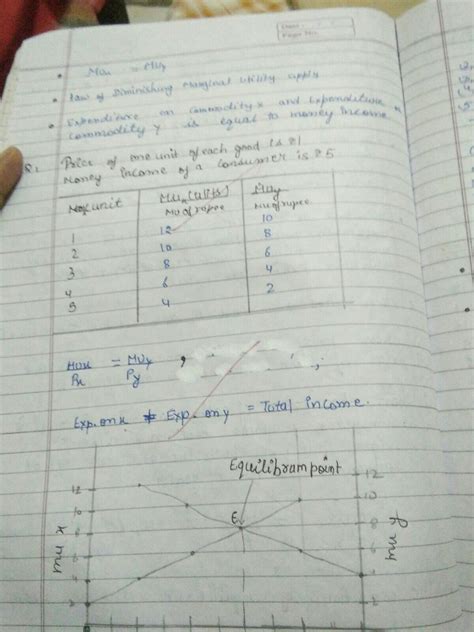 Date :
Page No.
MUx = MUy
• Law of Diminishing Marginal Utility apply
• Expenditure on commodity x and Expenditure
commodity y is equal to money income
Q: Price of one unit of each good is ₹1
Money income of a consumer is ₹5
No of unit MUx (utils) MUy
MU of rupee MU of rupee
1 12 10
2 10 8
3 8 6
4 6 4
5 4 2
MUx = MUy ,
Px Py
Exp. on x + Exp. on y = Total Income.
Equilibram point
12 12
10 10
8 E 8
6 6
4 4
2 2
mu x
mu y